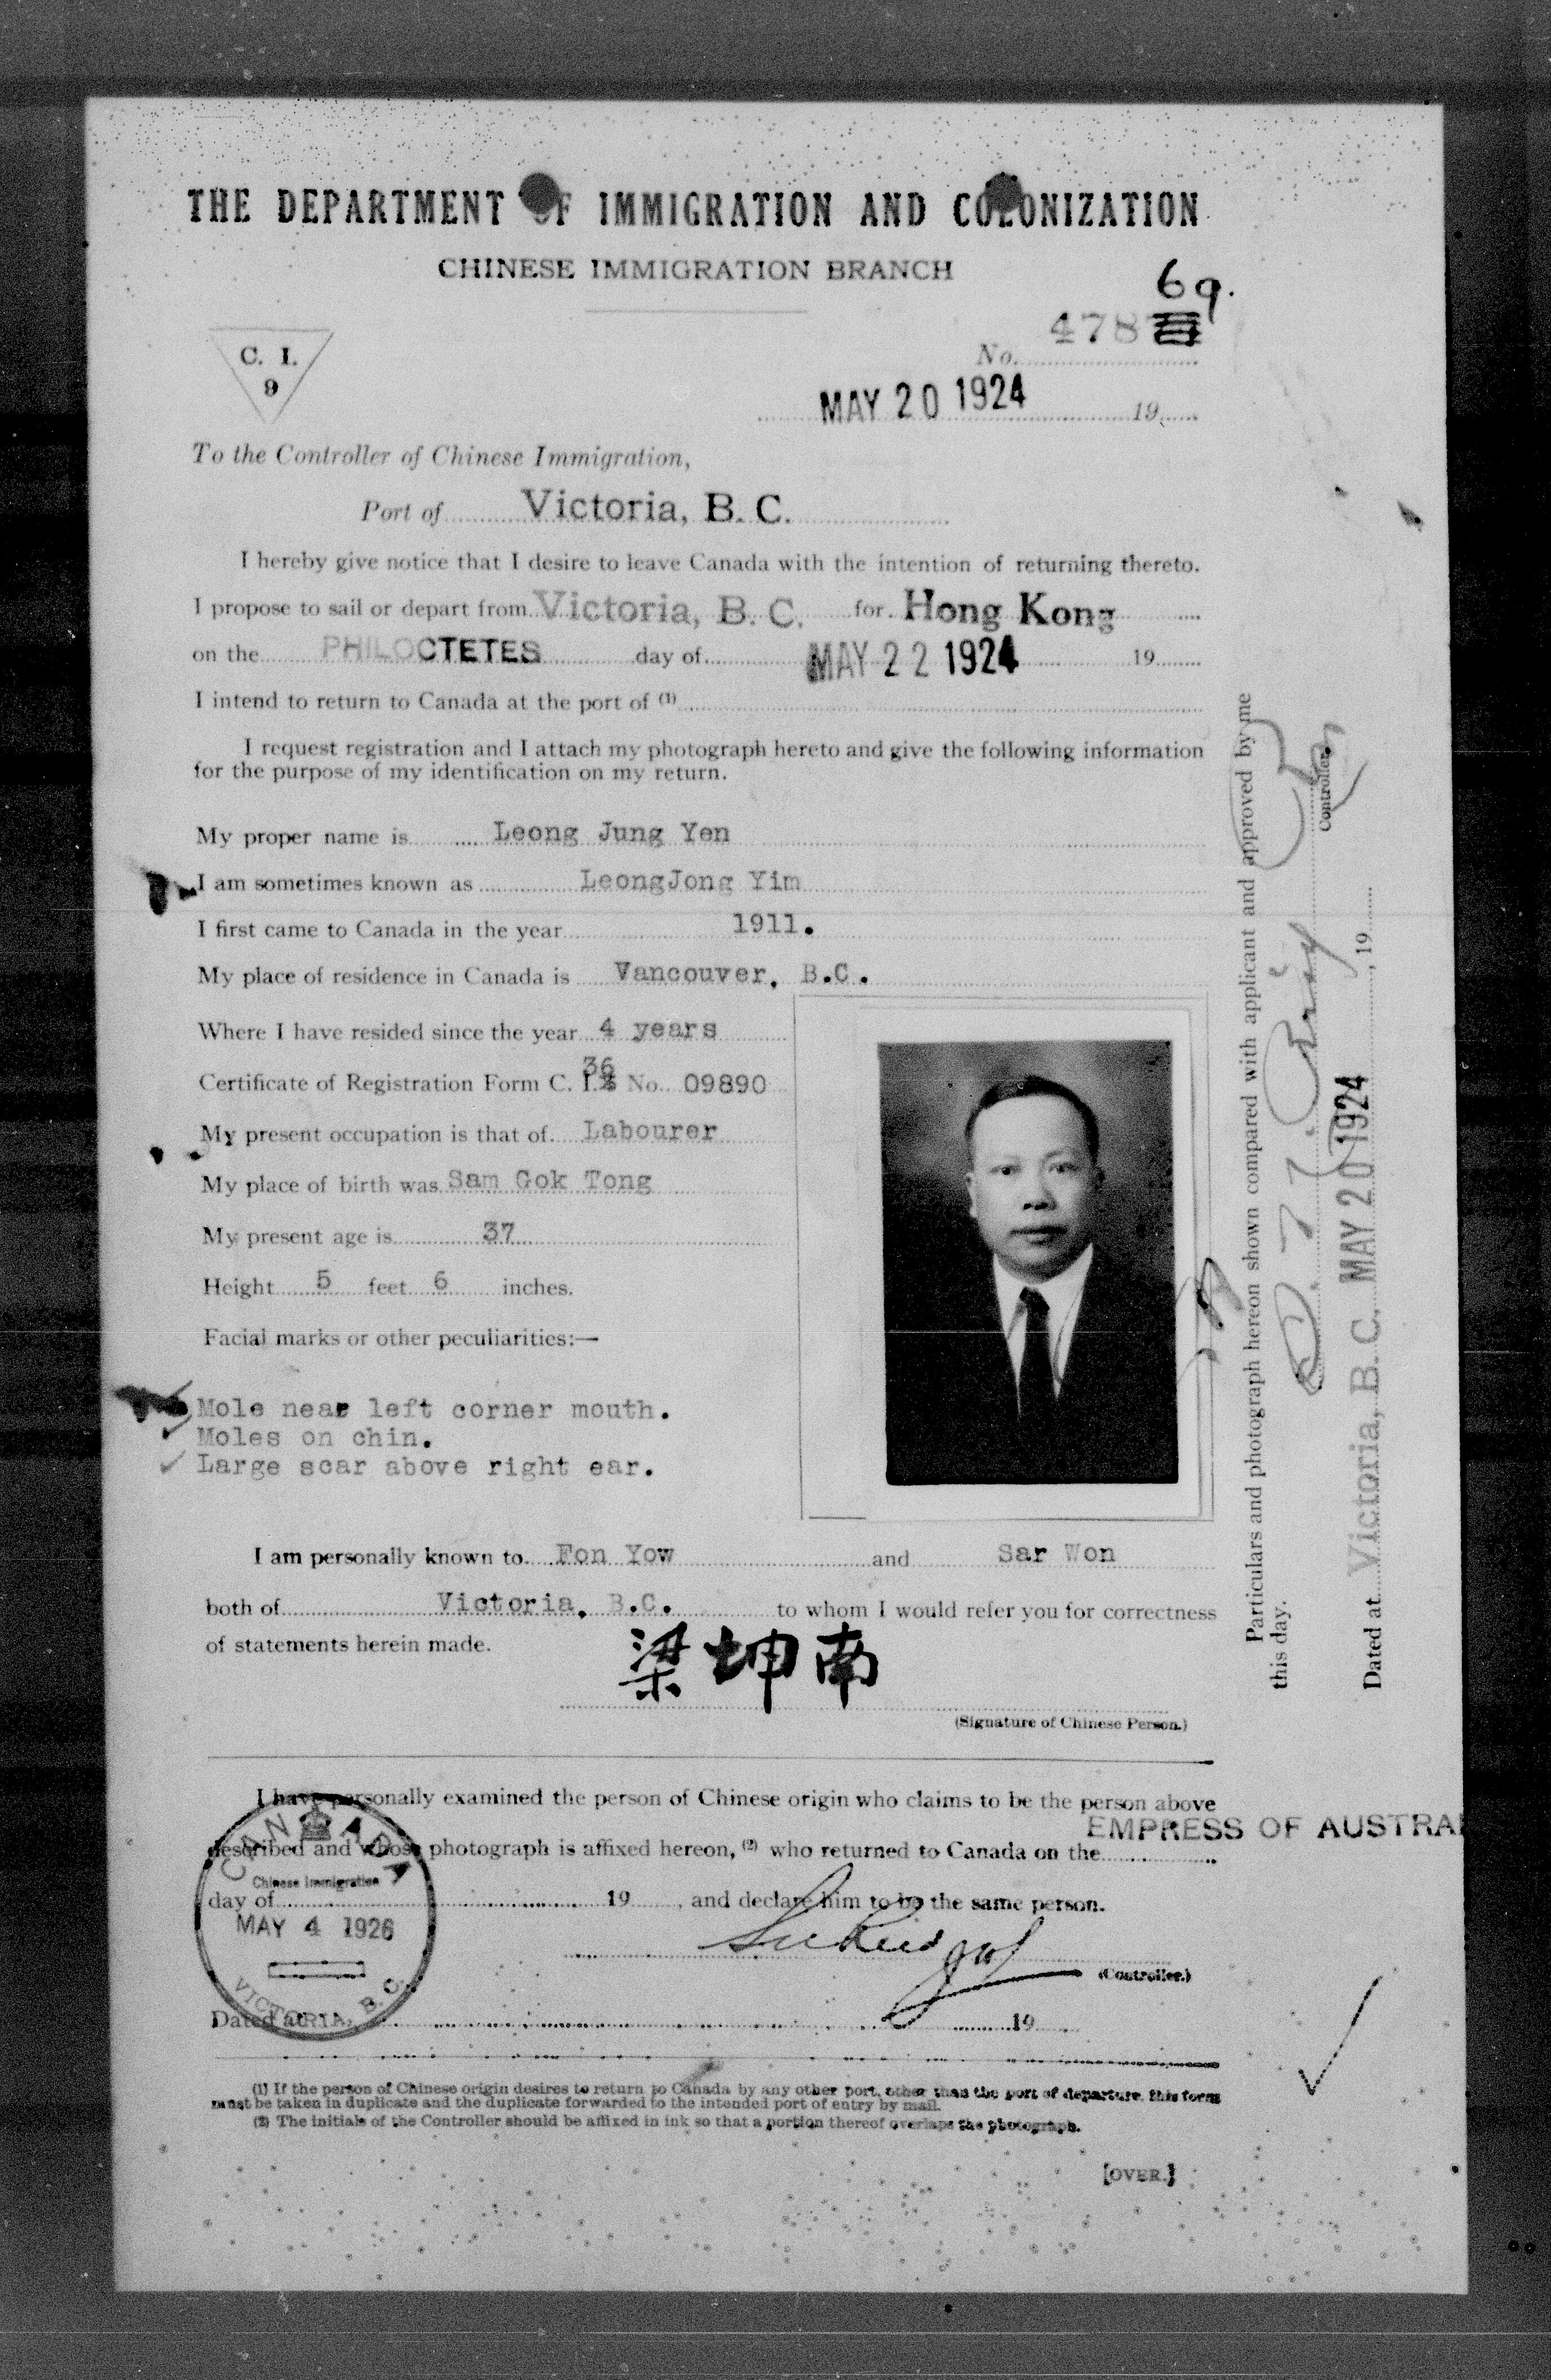 THE DEPARTMENT OF IMMIGRATION AND COLONIZATION
CHINESE IMMIGRATION BRANCH
69.
C. I.
9
No. 478
MAY 20 1924 19
To the Controller of Chinese Immigration,
Port of Victoria, B. C.
I hereby give notice that I desire to leave Canada with the intention of returning thereto.
I propose to sail or depart from Victoria, B. C. for Hong Kong
on the PHILOCTETES day of MAY 22 1924 19
I intend to return to Canada at the port of (1)
I request registration and I attach my photograph hereto and give the following information
for the purpose of my identification on my return.
My proper name is Leong Jung Yen
I am sometimes known as LeongJong Yim
I first came to Canada in the year 1911.
My place of residence in Canada is Vancouver, B.C.
Where I have resided since the year 4 years
36
Certificate of Registration Form C. I. No. 09890
My present occupation is that of Labourer
My place of birth was Sam Gok Tong
My present age is 37
Height 5 feet 6 inches.
Facial marks or other peculiarities:—
Mole near left corner mouth.
Moles on chin.
Large scar above right ear.
I am personally known to Fon Yow and Sar Won
both of Victoria, B.C. to whom I would refer you for correctness
of statements herein made.
梁坤南
(Signature of Chinese Person.)
I have personally examined the person of Chinese origin who claims to be the person above
EMPRESS OF AUSTRA
described and whose photograph is affixed hereon, (2) who returned to Canada on the
day of 19 , and declare him to be the same person.
(Controller.)
Dated at 19
CANADA
Chinese Immigration
MAY 4 1926
VICTORIA, B.C.
(1) If the person of Chinese origin desires to return to Canada by any other port, other than the port of departure, this form
must be taken in duplicate and the duplicate forwarded to the intended port of entry by mail.
(2) The initials of the Controller should be affixed in ink so that a portion thereof overlaps the photograph.
[OVER.]
Particulars and photograph hereon shown compared with applicant and approved by me
this day.
Controller.
Dated at Victoria, B. C. MAY 20 1924 , 19